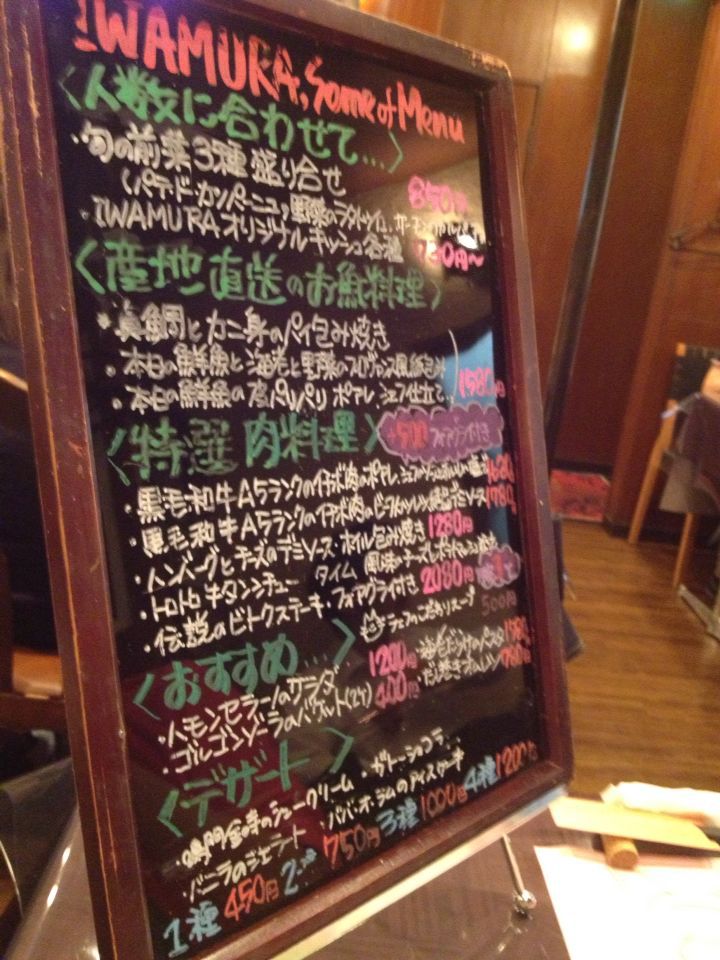 IWAMURA, Some of Menu
〈人数に合わせて…〉
・旬の前菜3種盛り合せ 850円
(パテ・ド・カンパーニュ, 野菜のラタトゥイユ,
・IWAMURAオリジナルキッシュ各種 円〜
〈産地直送のお魚料理〉
・真鯛とカニ身のパイ包み焼き
・本日の鮮魚と海老と野菜のプロヴァンス風紙包み
・本日の鮮魚の皮パリパリポアレ シェフ仕立て… 1580円
〈特選 肉料理〉 +500 フォアグラ付き
・黒毛和牛A5ランクのイチボ肉のポアレ
・黒毛和牛A5ランクのイチボ肉の ソース 1780
・ハンバーグとチーズのデミソース・ホイル包み焼き 1280円
・トロトロ牛タンシチュー タイム風味の
・伝説のビトクステーキ・フォアグラ付き 2080円
シェフのこだわりスープ 500円
〈おすすめ…〉
・ハモンセラーノのサラダ 1200円 ・海老だらけのパスタ 1580
・ゴルゴンゾーラのバゲット(2ヶ) 400円 ・だし巻きオムレツ 780円
〈デザート〉
・鳴門金時のシュークリーム ・ガトーショコラ
・バニラのジェラート ・ババ・オ・ラムのアイスケーキ
1種 450円 2 750円 3種 1000円 4種 1200円